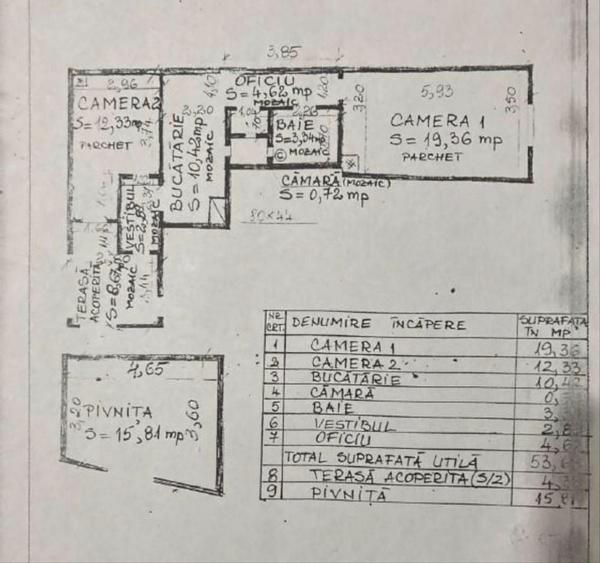 3,85
2,96
CAMERA 2
S=12,33mp
PARCHET
3,74
BUCĂTĂRIE
S=10,42mp
MOZAIC
2,20
4,10
OFICIU
S=4,62 mp
MOZAIC
1,20
BAIE
S=3,34mp
MOZAIC
5,93
CAMERA 1
S=19,36 mp
PARCHET
3,20
3,50
CĂMARĂ (MOZAIC)
S=0,72 mp
80×44
VESTIBUL
MOZAIC
TERASĂ
ACOPERITĂ
MOZAIC
4,65
PIVNIȚA
S=15,81 mp
3,20
3,60
NR. CRT. DENUMIRE ÎNCĂPERE SUPRAFAȚA ÎN MP
1 CAMERA 1 19,36
2 CAMERA 2 12,33
3 BUCĂTĂRIE 10,42
4 CĂMARĂ 0,
5 BAIE 3,
6 VESTIBUL 2,8
7 OFICIU 4,6
TOTAL SUPRAFAȚĂ UTILĂ 53,6
8 TERASĂ ACOPERITĂ (S/2) 4,3
9 PIVNIȚĂ 15,81